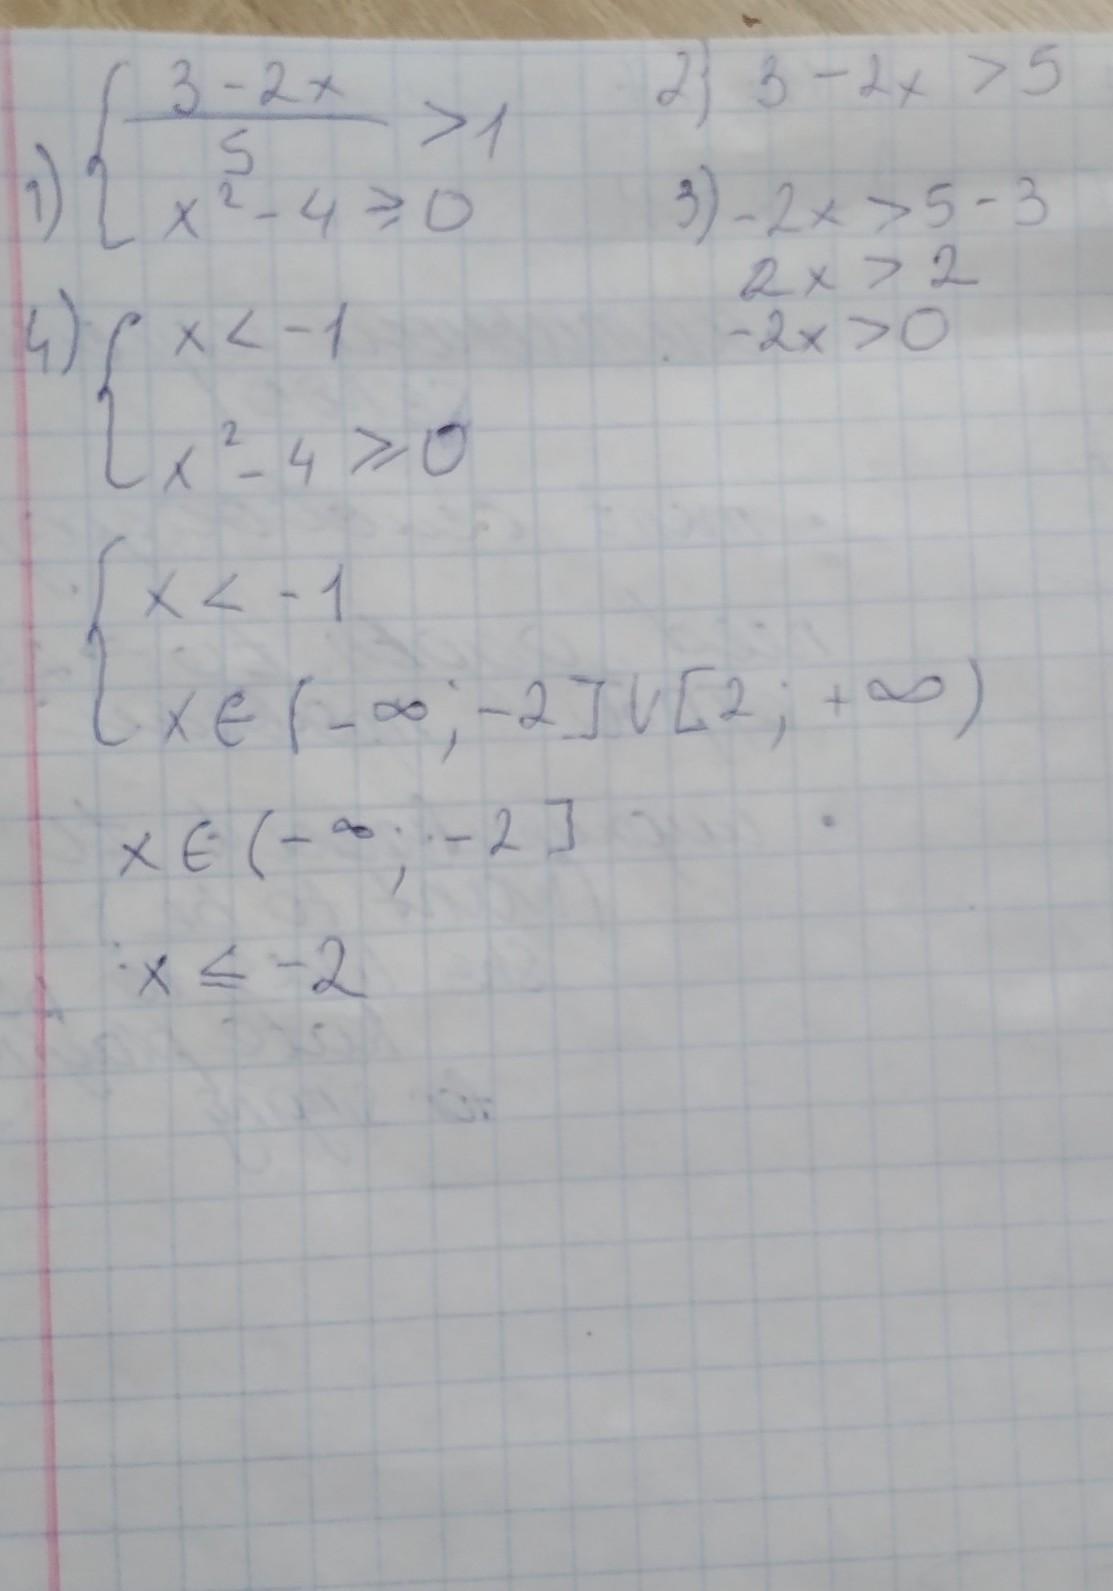 1) { (3 - 2x)/5 > 1
x² - 4 ≥ 0
2) 3 - 2x > 5
3) -2x > 5 - 3
2x > 2
-2x > 0
4) { x < -1
x² - 4 ≥ 0
{ x < -1
x ∈ (-∞; -2] ∪ [2; +∞)
x ∈ (-∞; -2]
x ≤ -2